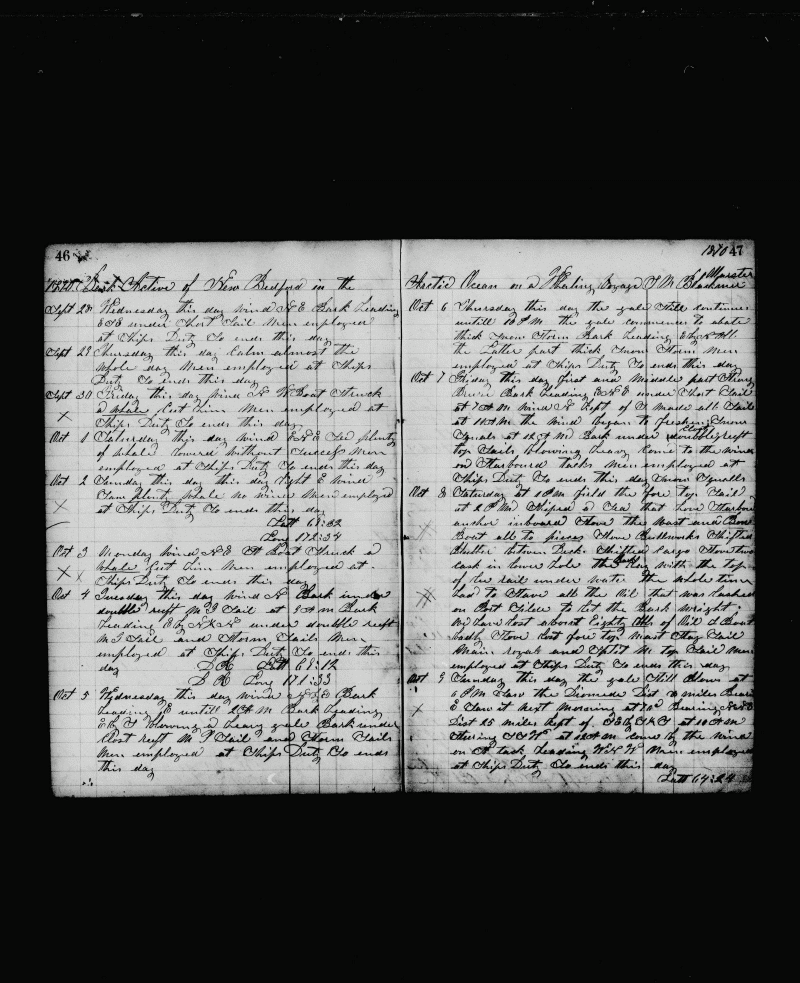 46
1870 Bark Active of New Bedford in the
Sept 28 Wednesday this day wind N E Bark heading
E S E under Short Sail Men employed
at Ships Duty So ends this day
Sept 29 Thursday this day Calm almost the
whole day Men employed at Ships
Duty So ends this day
Sept 30 Friday this day wind N W Boat Struck
a whale Lost him Men employed at
Ships Duty So ends this day
Oct 1 Saturday this day wind E N E See plenty
of whale Lowered without Success Men
employed at Ships Duty So ends this day
Oct 2 Sunday this day this day light E wind
Saw plenty whale no wind Men employed
at Ships Duty So ends this day
Latt 68:32
Long 172:34
Oct 3 Monday wind N E Boat Struck a
whale Lost him Men employed at
Ships Duty So ends this day
Oct 4 Tuesday this day wind N Bark under
double reeft M T Sail at 8 A M Bark
heading E by N under double reeft
M T Sail and Storm Sails Men
employed at Ships Duty So ends this
day D R Latt 68:12
D R Long 171:33
Oct 5 Wednesday this day wind N N E Bark
heading E untill 12 A M Bark heading
E by S blowing a heavy gale Bark under
Close reeft M T Sail and Storm Sails
Men employed at Ships Duty So ends
this day
1870 47
Arctic Ocean on a Whaling Voyage T M Blackmer Marster
Oct 6 Thursday this day the gale Still continues
untill 10 P M the gale commences to abate
thick Snow Storm Bark heading
the Latter part thick Snow Storm Men
employed at Ships Duty So ends this day
Oct 7 Friday this day first and Middle part Strong
Breeze Bark heading E N E under Short Sail
at 7 A M wind N Kept of S made all Sails
at 11 A M the wind began to freshing Snow
Squals at 12 A M Bark under Close reeft
top Sails blowing heavy Come to the wind
on Starboard tacks Men employed at
Ships Duty So ends this day Snow Squalls
Oct 8 Saturday at 1 P M furld the fore top Sail
at 2 P M Shiped a Sea that hove Starboard
anchor inboard Stove the Wast and Bow
Boat all to pieces Stove Bullworks Shifted
Shutter between Decks Shifted Cargo Stove two
cask in lower hole the Bark Lay with the top
of lee rail under water the whole time
had to Stave all the Oil that was lashed
on Port Side to let the Bark wright
We have lost about Eighty bbls of Oil 1 Boat
badly Stove lost fore top Mast Stay Sail
Main royal and Split M top Sail Men
employed at Ships Duty So ends this day
Oct 9 Sunday this day the gale Still blows at
6 P M Saw the Diomede Dist miles Bearing
E Saw it next Morning at Bearing
Dist 25 miles Kept of at 10 A M
at 12 A M come by the wind
on tack heading Men employed
at Ships Duty So ends this day
Latt 64:24